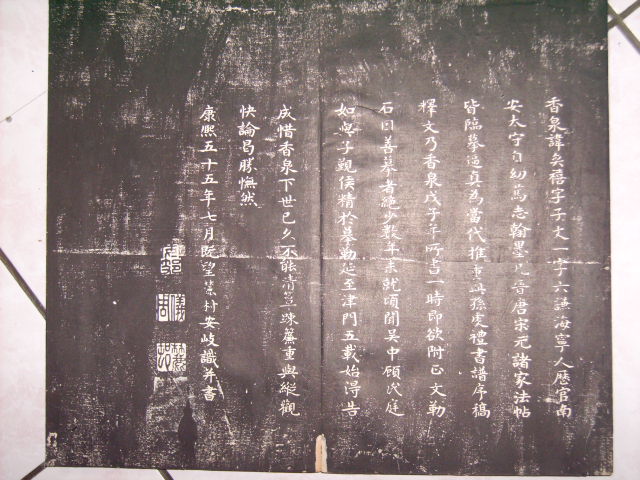 香泉諱奕禧字子文一字六謙海寧人歷官南
安太守自幼篤志翰墨凡晉唐宋元諸家法帖
皆臨摹逼真為當代推重此孫虔禮書譜序稿
釋文乃香泉戊子年所書一時即欲附正文勒
石因善摹者絕少數年未就頃聞吳中顧氏庭
如與子覲侯精於摹勒延至津門五載始得告
成惜香泉下世已久不能清簟疎簾重與縱觀
快論曷勝憮然
康熙五十五年七月既望麓村安岐識并書